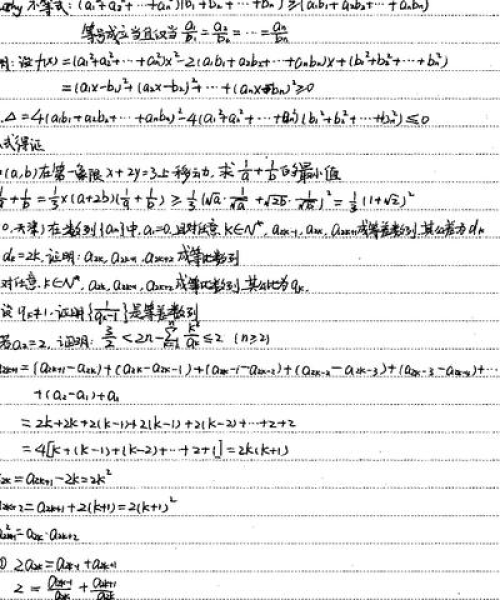 不等式: (a₁²+a₂²+⋯+aₙ²)(b₁²+b₂²+⋯+bₙ²)≥(a₁b₁+a₂b₂+⋯+aₙbₙ)²
等号成立当且仅当 a₁/b₁=a₂/b₂=⋯=aₙ/bₙ
明: 设f(x)=(a₁²+a₂²+⋯+aₙ²)x²-2(a₁b₁+a₂b₂+⋯+aₙbₙ)x+(b₁²+b₂²+⋯+bₙ²)
=(a₁x-b₁)²+(a₂x-b₂)²+⋯+(aₙx-bₙ)²≥0
∴Δ=4(a₁b₁+a₂b₂+⋯+aₙbₙ)²-4(a₁²+a₂²+⋯+aₙ²)(b₁²+b₂²+⋯+bₙ²)≤0
式得证
(a,b)在第一象限x+2y=3上移动, 求1/a+1/b的最小值
1/a+1/b=1/3×(a+2b)(1/a+1/b)≥1/3(√a·1/√a+√2b·1/√b)²=1/3(1+√2)²
0.天津) 在数列{aₙ}中, a₁=0, 且对任意k∈N*, a₂ₖ₋₁, a₂ₖ, a₂ₖ₊₁成等差数列, 其公差为dₖ
dₖ=2k, 证明: a₂ₖ, a₂ₖ₊₁, a₂ₖ₊₂成等比数列
对任意k∈N*, a₂ₖ, a₂ₖ₊₁, a₂ₖ₊₂成等比数列, 其公比为qₖ
设q₁≠1, 证明{1/(qₖ-1)}是等差数列
若a₂=2, 证明: 3/2<2n-∑ₖ₌₂ⁿ k²/aₖ≤2 (n≥2)
a₂ₖ₊₁=(a₂ₖ₊₁-a₂ₖ)+(a₂ₖ-a₂ₖ₋₁)+(a₂ₖ₋₁-a₂ₖ₋₂)+(a₂ₖ₋₂-a₂ₖ₋₃)+(a₂ₖ₋₃-a₂ₖ₋₄)+⋯
+(a₂-a₁)+a₁
=2k+2k+2(k-1)+2(k-1)+2(k-2)+⋯+2+2
=4[k+(k-1)+(k-2)+⋯+2+1]=2k(k+1)
a₂ₖ=a₂ₖ₊₁-2k=2k²
a₂ₖ₊₂=a₂ₖ₊₁+2(k+1)=2(k+1)²
a₂ₖ₊₁²=a₂ₖ·a₂ₖ₊₂
① 2a₂ₖ=a₂ₖ₋₁+a₂ₖ₊₁
2=a₂ₖ₋₁/a₂ₖ+a₂ₖ₊₁/a₂ₖ